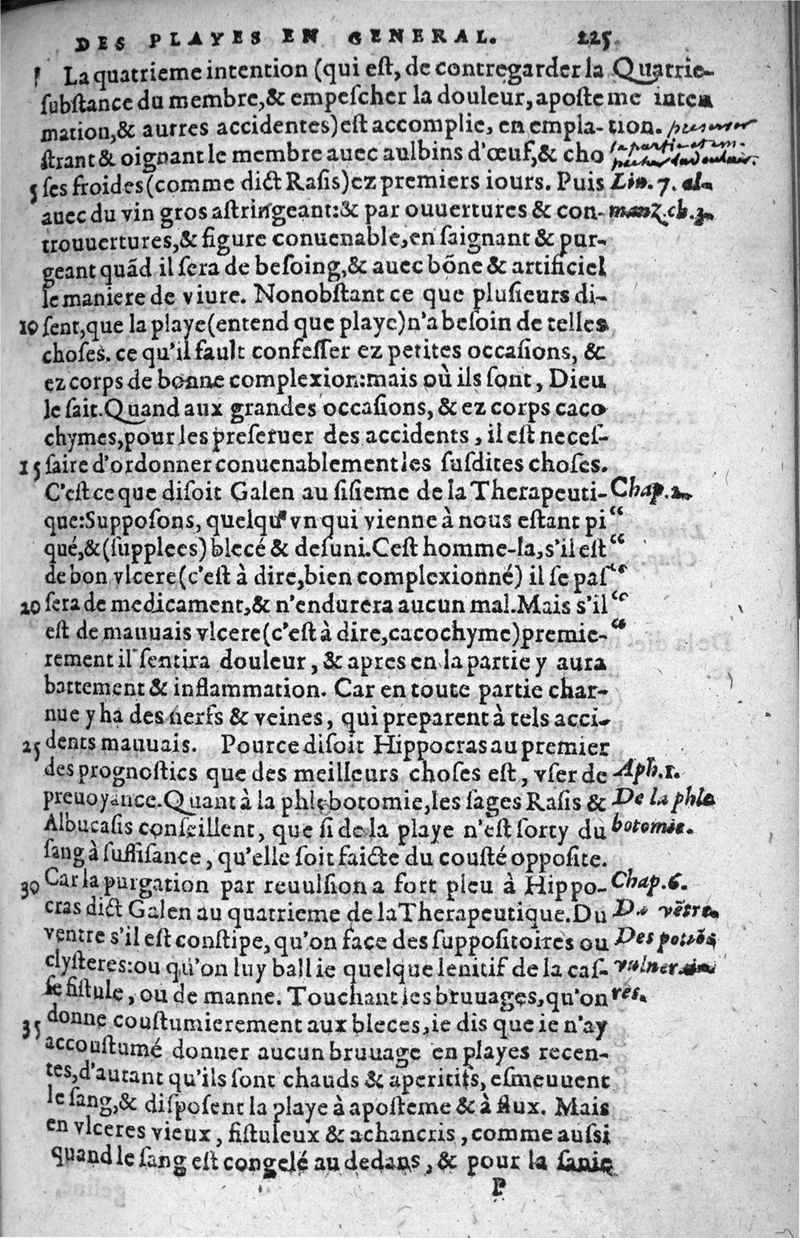 DES PLAYES EN GENERAL. 225
La quatrieme intention (qui eſt, de contregarder la Quatrie-
ſubſtance du membre,& empeſcher la douleur, apoſteme inten
mation,& autres accidentes) eſt accomplie, en empla- tion.
ſtrant & oignant le membre auec aulbins d'œuf,& cho
5 ſes froides (comme dict Raſis) ez premiers iours. Puis Liu. 7. al-
auec du vin gros aſtringeant:& par ouuertures & con- manz. ch. 3.
trouuertures,& figure conuenable, en ſaignant & pur-
geant quãd il ſera de beſoing,& auec bõne & artificiel
le maniere de viure. Nonobſtant ce que pluſieurs di-
10 ſent, que la playe (entend que playe) n'a beſoin de telles
choſes. ce qu'il fault confeſſer ez petites occaſions, &
ez corps de bonne complexion: mais où ils ſont, Dieu
le ſait. Quand aux grandes occaſions, & ez corps caco
chymes, pour les preſeruer des accidents, il eſt neceſ-
15 ſaire d'ordonner conuenablement les ſuſdites choſes.
C'eſt ce que diſoit Galen au ſiſieme de la Therapeuti- Chap. 1.
que: Suppoſons, quelqu'vn qui vienne à nous eſtant pi “
qué,& (ſupplees) blecé & deſuni. Ceſt homme-la, s'il eſt “
de bon vlcere (c'eſt à dire, bien complexionné) il ſe paſ “
20 ſera de medicament,& n'endurera aucun mal. Mais s'il “
eſt de mauuais vlcere (c'eſt à dire, cacochyme) premie- “
rement il ſentira douleur, & apres en la partie y aura
battement & inflammation. Car en toute partie char-
nue y ha des nerfs & veines, qui preparent à tels acci-
25 dents mauuais. Pource diſoit Hippocras au premier
des prognoſtics que des meilleurs choſes eſt, vſer de Aph. 1.
preuoyance. Quant à la phlebotomie, les ſages Raſis & De la phle
Albucaſis conſeillent, que ſi de la playe n'eſt ſorty du botomie.
ſang à ſuffiſance, qu'elle ſoit faicte du couſté oppoſite.
30 Car la purgation par reuulſion a fort pleu à Hippo- Chap. 6.
cras dict Galen au quatrieme de la Therapeutique. Du Du vẽtre.
ventre s'il eſt conſtipe, qu'on face des ſuppoſitoires ou Des potiõs
clyſteres: ou qu'on luy baillie quelque lenitif de la caſ- vulnerai
ſe fiſtule, ou de manne. Touchant les bruuages, qu'on res.
35 donne couſtumierement aux bleces, ie dis que ie n'ay
accouſtumé donner aucun bruuage en playes recen-
tes, d'autant qu'ils ſont chauds & aperitifs, eſmeuuent
le ſang,& diſpoſent la playe à apoſteme & à flux. Mais
en vlceres vieux, fiſtuleux & achancris, comme auſsi
quand le ſang eſt congelé au dedans, & pour la ſanie
P